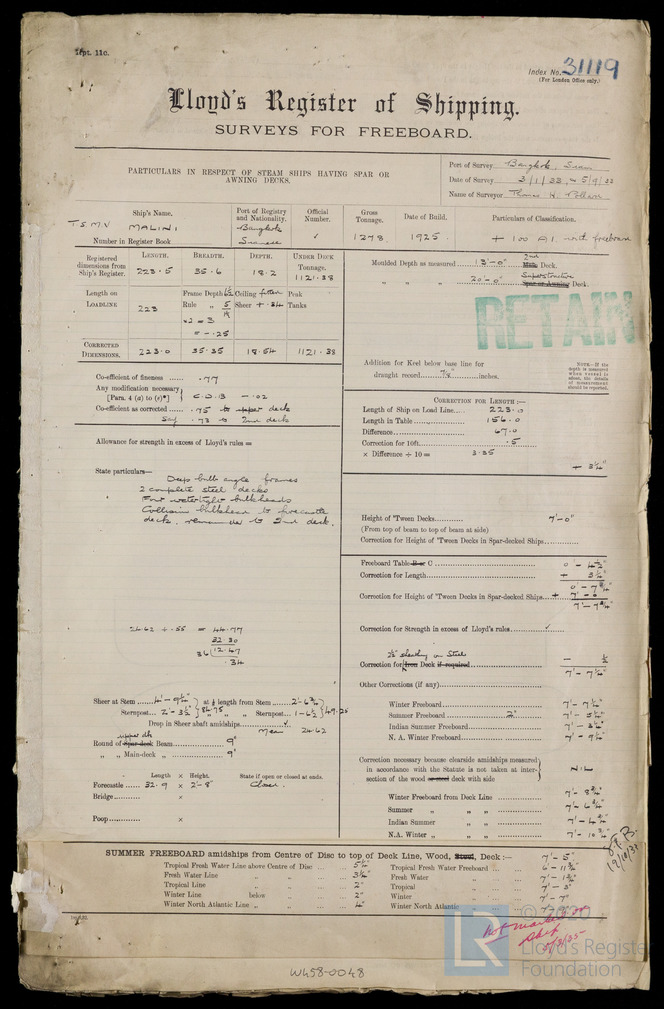 Rpt. 11c.
Index No. 31119
(For London Office only.)
Lloyd's Register of Shipping.
SURVEYS FOR FREEBOARD.
PARTICULARS IN RESPECT OF STEAM SHIPS HAVING SPAR OR AWNING DECKS.
Port of Survey Bangkok, Siam
Date of Survey 3/1/33
Name of Surveyor Thomas H.
Ship's Name. Port of Registry and Nationality. Official Number. Gross Tonnage. Date of Build. Particulars of Classification.
T.S.M.V. MALINI Bangkok Siamese 1278 1925 + 100 A1. with freeboard
Number in Register Book
Registered dimensions from Ship's Register. LENGTH. 223.5 BREADTH. 35.6 DEPTH. 18.2 UNDER DECK Tonnage. 1121.38
Moulded Depth as measured 13'-0" 2nd Main Deck.
" " " 20'-0" Superstructure Spar or Awning Deck.
RETAIN
Length on LOADLINE 223 Frame Depth 6½ Ceiling fitted Peak
Rule " 5 Sheer + .34 Tanks
×2 = 3
= - .25
CORRECTED DIMENSIONS. 223.0 35.35 18.54 1121.38
Addition for Keel below base line for
draught record 7½" inches.
NOTE—If the depth is measured when vessel is afloat, the details of measurement should be reported.
Co-efficient of fineness .77
Any modification necessary [Para. 4 (a) to (e)*] C.D.B - .02
Co-efficient as corrected .75 to upper deck
Say .73 to 2nd deck
CORRECTION FOR LENGTH:—
Length of Ship on Load Line 223.0
Length in Table 156.0
Difference 67.0
Correction for 10ft. .5
× Difference ÷ 10 = 3.35
+ 3¼"
Allowance for strength in excess of Lloyd's rules =
State particulars—
Deep bulb angle frames
2 complete steel decks
Four watertight bulkheads
Collision bulkhead to forecastle
deck, remainder to 2nd deck.
Height of 'Tween Decks 7'-0"
(From top of beam to top of beam at side)
Correction for Height of 'Tween Decks in Spar-decked Ships
Freeboard Table B or C 0'-4½"
Correction for Length + 3¼"
0'-7¾"
Correction for Height of 'Tween Decks in Spar-decked Ships + 7'-0
7'-7¾"
24.62 + .55 = 44.77
32.30
36 12.47
.34
Correction for Strength in excess of Lloyd's rules ✓
2½" sheathing on Steel
Correction for Iron Deck if required - ½
7'-7¼"
Other Corrections (if any)
Sheer at Stem 4'-9½" at ⅛ length from Stem 2'-6¾"
Sternpost 2'-3½" 84.75 " " Sternpost 1-6½ 49.25
Drop in Sheer abaft amidships ✓
Mean 24.62
Round of upper dk Spar-deck Beam 9"
" " Main-deck " 9"
Winter Freeboard 7'-7¼"
Summer Freeboard 2" 7'-5¼"
Indian Summer Freeboard 7'-3¼"
N. A. Winter Freeboard 7'-9¼"
Correction necessary because clearside amidships measured in accordance with the Statute is not taken at intersection of the wood or steel deck with side NIL
Length × Height. State if open or closed at ends.
Forecastle 32.9 × 2'-8" Closed.
Bridge ×
Poop ×
Winter Freeboard from Deck Line 7'-8¾"
Summer " " " 7'-6¾"
Indian Summer " " 7'-4¾"
N.A. Winter " " " 7'-10¾"
SUMMER FREEBOARD amidships from Centre of Disc to top of Deck Line, Wood, Steel, Deck:— 7'-5"
Tropical Fresh Water Line above Centre of Disc 5¼" Tropical Fresh Water Freeboard 6'-11¾"
Fresh Water Line " " 3¼" Fresh Water " 7'-1¾"
Tropical Line " " 2" Tropical " 7'-3"
Winter Line below " 2" Winter " 7'-7"
Winter North Atlantic Line " " 4" Winter North Atlantic " 7'-9"
19/10/33
not marked on
ship
© 2020
LR
Lloyd's Register
Foundation
W458-0048